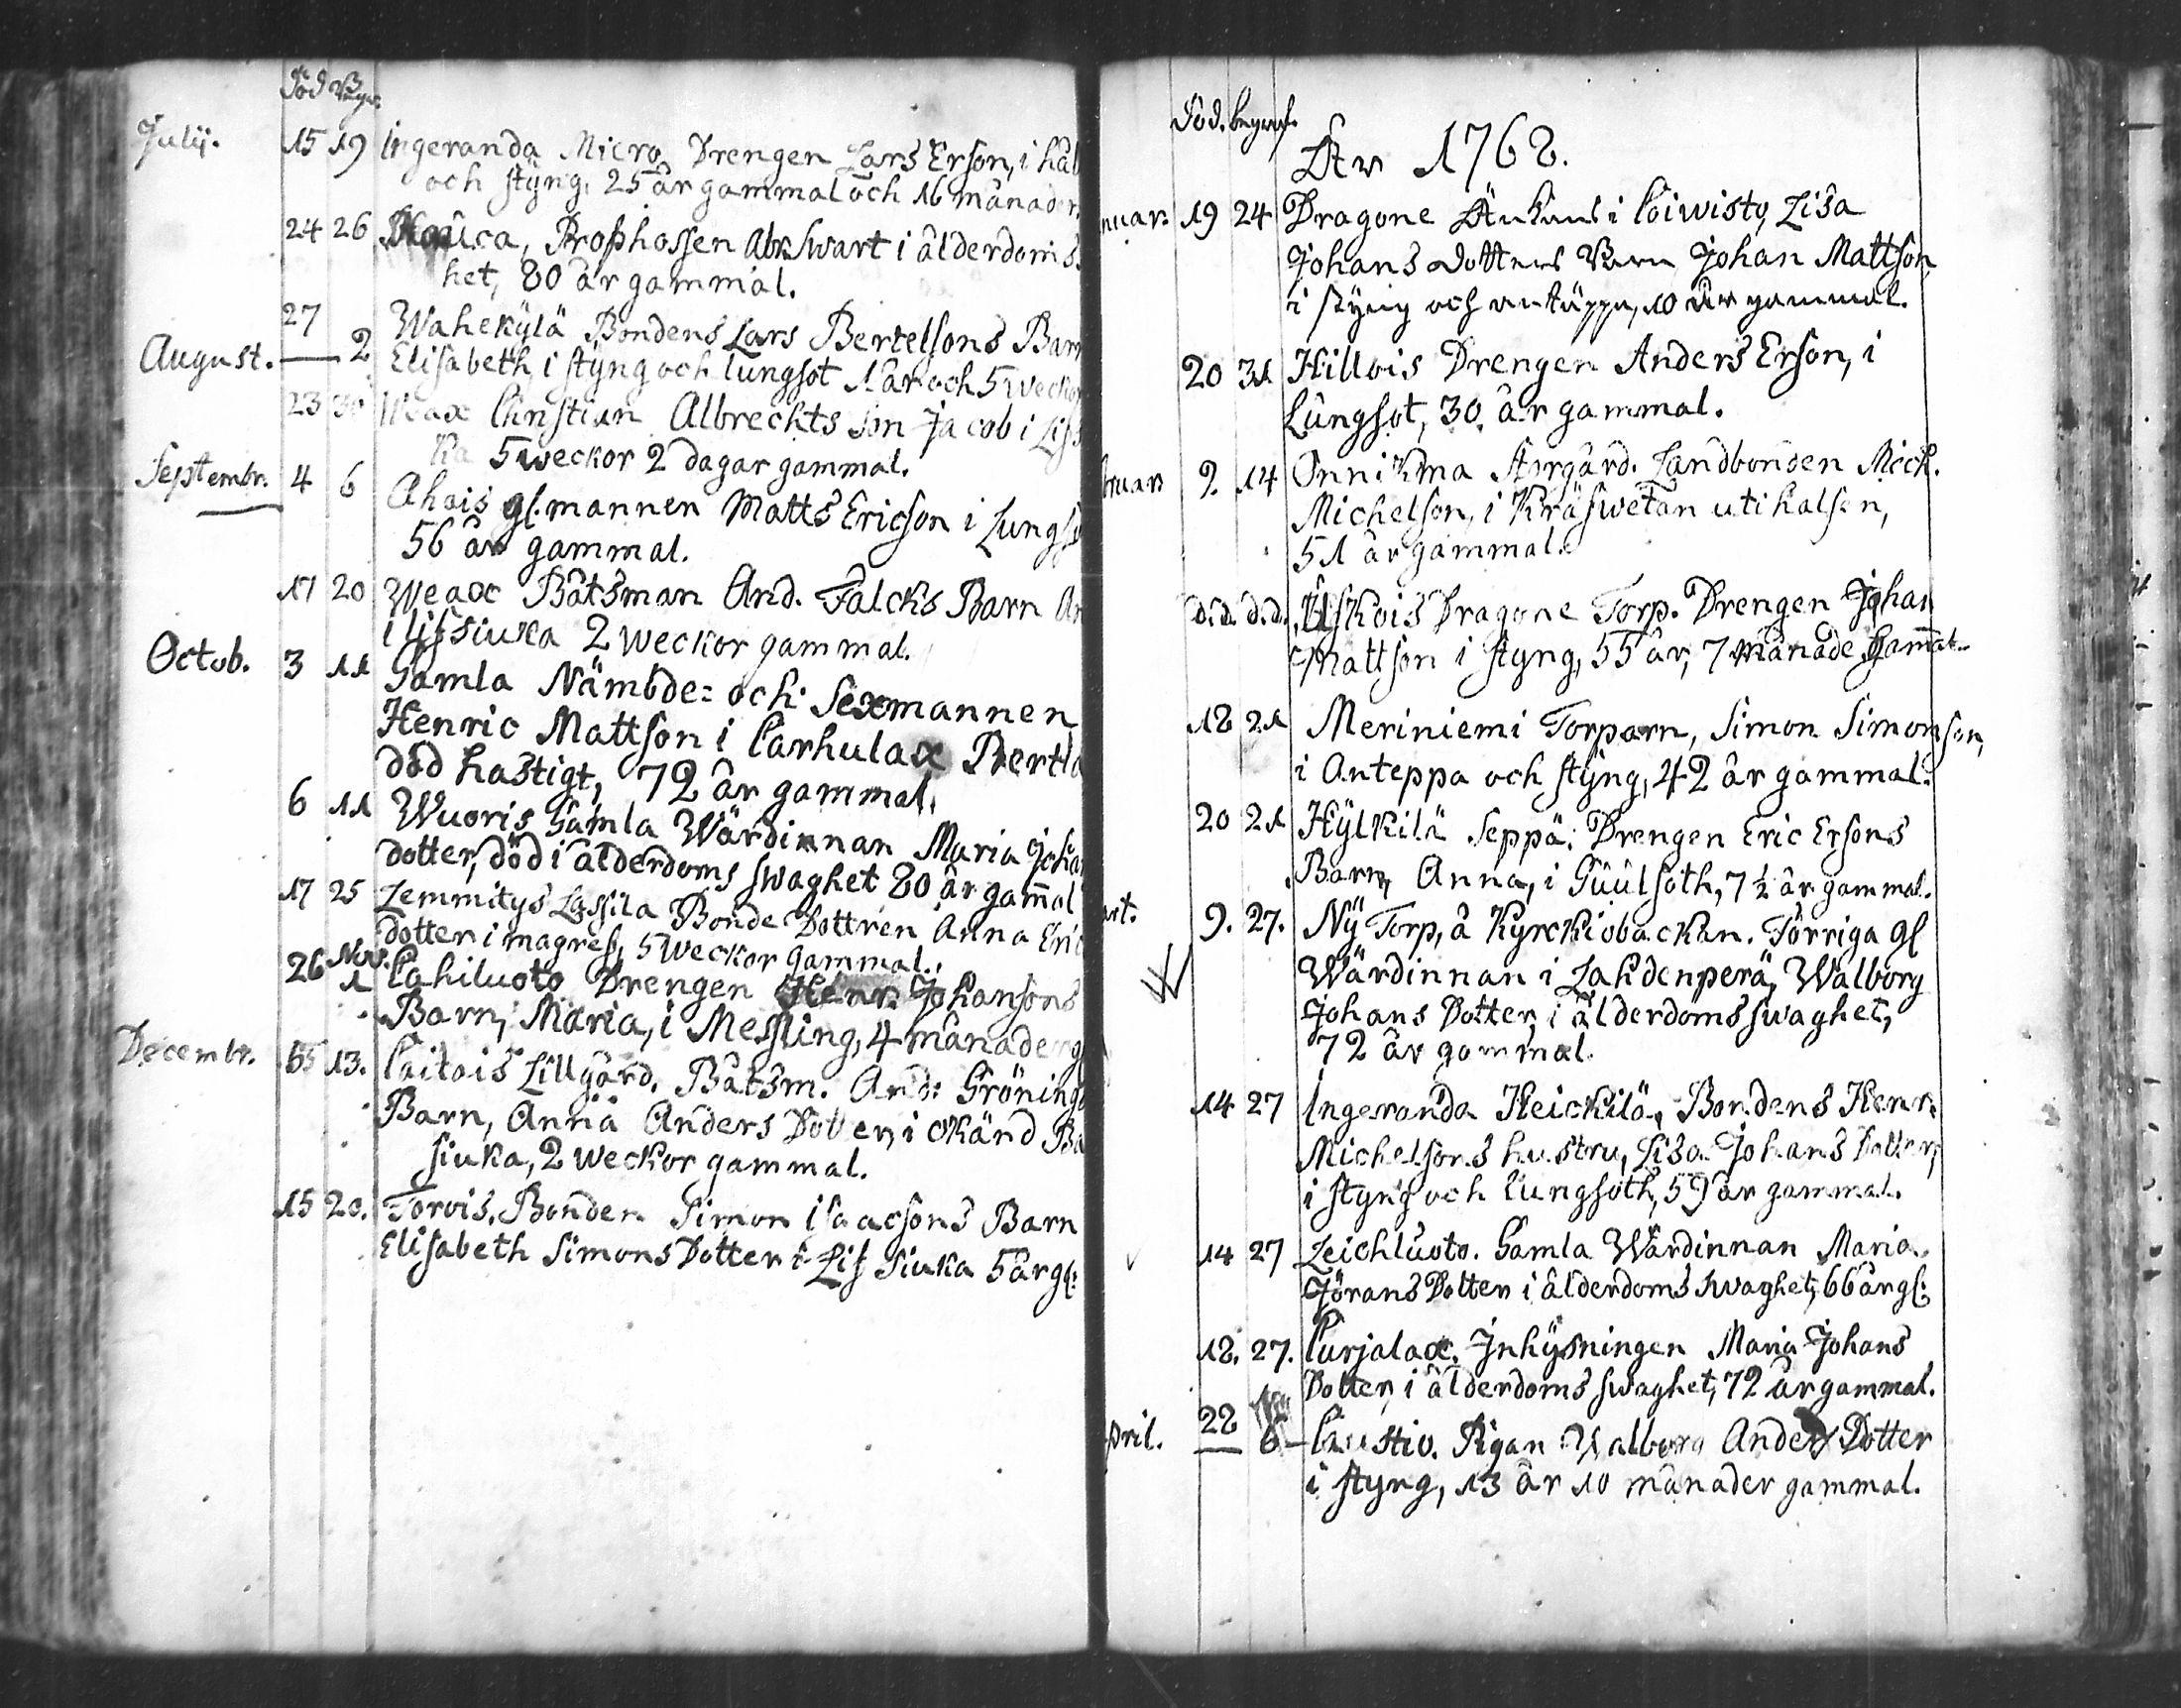 Död Begr.
Julij. 15 19 Ingeranda Micro Drengen Lars Erson, i hål
och styng, 25 år gammal och 16 månader.
24 26 Prophossen Abr. Swart i ålderdoms
het, 80 år gammal.
27 Wahekylä Bondens Lars Bertelsons Barn
August. — 2 Elisabeth, i styng och lungsot 1 år och 5 weckor
23 30 Weax Christian Albrechts son Jacob i Lif
ka 5 weckor 2 dagar gammal.
Septembr. 4 6 Ahais gl. mannen Matts Ericson i Lungso
56 år gammal.
17 20 Weax Båtsman And. Falcks Barn An
i lifssiuka 2 weckor gammal.
Octob. 3 11 Gamla Nämbde= och Sexmannen
Henric Mattson i Carhulax Bertla
död hastigt, 72 år gammal.
6 11 Wuoris Gamla Wärdinnan Maria Joha
dotter, död i ålderdoms swaghet 80 år gam̄al
17 25 Lemmitys Lassila Bonde Dottren Anna Eric
dotter i magref, 5 weckor gammal.
26 Nov. 1 Cahiluoto Drengen Henr. Johansons
Barn, Maria, i Messling, 4 månader g
Decembr. 5 13. Caitais Lillgård. Båtsm. And: Gröning
Barn, Anna Anders Dotter, i okänd Ba
siuka, 2 weckor gammal.
15 20. Torvis, Bonden Simon Isaacsons Barn
Elisabeth Simons Dotter i Lif Siuka 5 år gl:
Död. begraf.
År 1768.
nuar: 19 24 Dragone Änkans i Coiwisto, Lisa
Johans Dotters Barn Johan Mattson
i styng och antäppa, 10 år gammal.
20 31 Hillois Drengen Anders Erson, i
Lungsot, 30 år gammal.
bruar 9. 14 Onnikma Storgård. Landbonden Mich.
Michelson, i Kräfwetan uti halsen,
51 år gammal.
d.d. d.d. Uskois Dragone Torp. Drengen Johan
Mattson i styng, 55 år, 7 månade gam̄al.
18 21 Meriniemi Torparn, Simon Simonson,
i Anteppa och styng, 42 år gammal.
20 21 Hylkilä Seppä: Drengen Eric Ersons
Barn, Anna, i Guulsoth, 7 ½ år gammal.
art. 9. 27. Ny Torp, å Kyrckiobackan. Förriga gl
Wärdinnan i Lahdenperä, Walborg
Johans Dotter, i ålderdoms swaghet,
72 år gammal.
14 27 Ingeranda Heickilä, Bondens Henr.
Michelsons hustru, Lisa Johans Dotter,
i styng och lungsoth, 59 år gammal.
14 27 Leichluoto. Gamla Wärdinnan Maria
Jörans Dotter i ålderdoms swaghet, 66 år gl:
18. 27. Curjalax. Inhysningen Maria Johans
Dotter, i ålderdoms swaghet, 72 år gammal.
pril. 28 6 Caustio. Pigan Walborg Anders Dotter
i styng, 13 år 10 månader gammal.